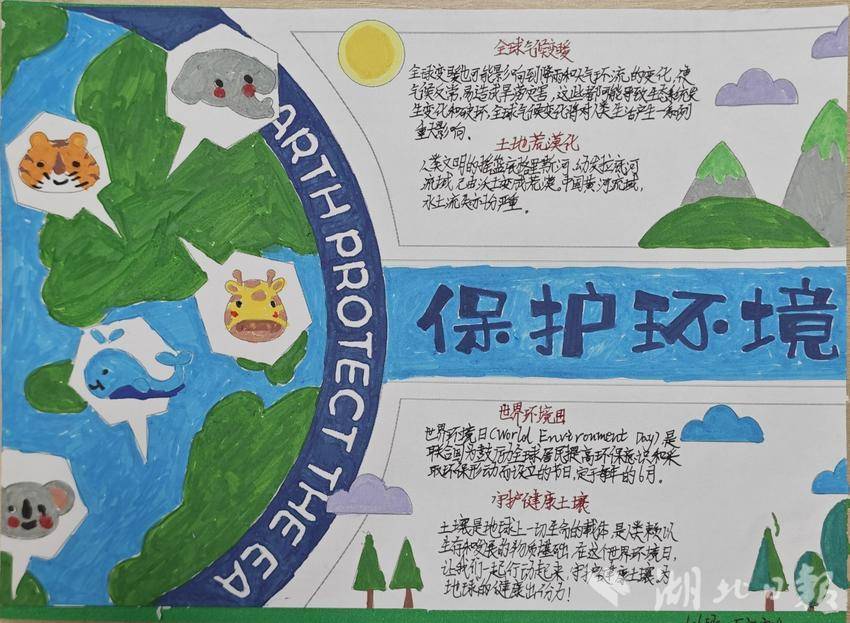 ARTH PROTECT THE EA
全球气候变暖
全球变暖也可能影响到降雨和大气环流的变化,使
气候反常,易造成旱涝灾害,这些都可能导致生态系统发
生变化和破坏,全球气候变化将对人类生活产生一系列
重大影响。
土地荒漠化
人类文明的摇篮底格里斯河、幼发拉底河
流域,已由沃土变成荒漠。中国黄河流域,
水土流失十分严重。
保护环境
世界环境日
世界环境日(World Environment Day)是
联合国为鼓励全球居民提高环保意识和采
取环保行动而设立的节日,定于每年的6月。
守护健康土壤
土壤是地球上一切生命的载体,是人类赖以
生存和发展的物质基础,在这个世界环境日,
让我们一起行动起来,守护健康土壤,为
地球的健康出份力!
湖北日报